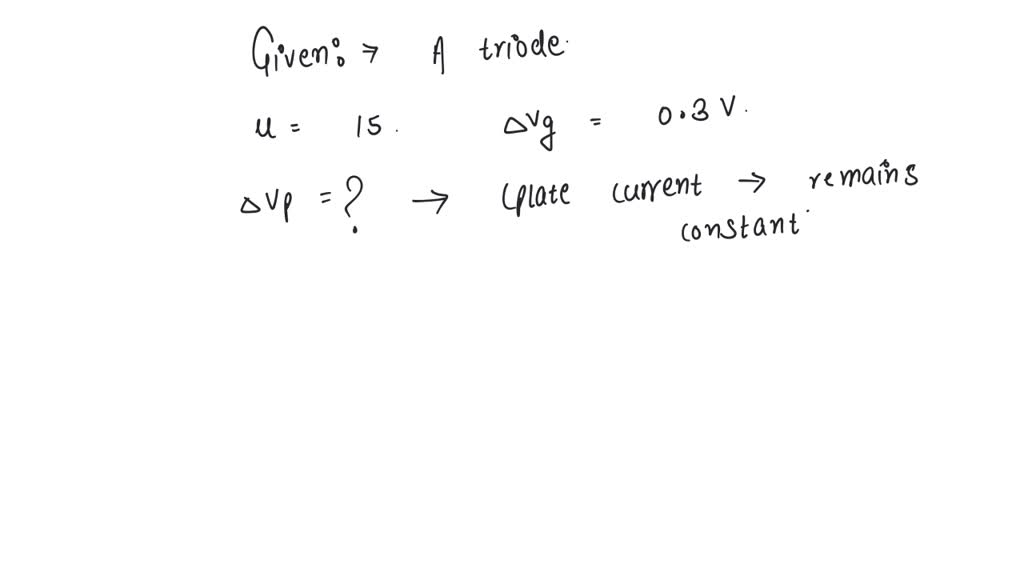 Given:→ A triode.
u = 15. ΔVg = 0.3 V.
ΔVp = ? → (plate current → remains
constant